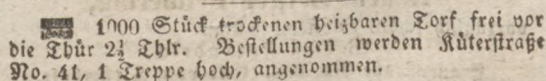 1000 Stück trockenen heizbaren Torf frei vor
die Thür 2½ Thlr. Bestellungen werden Küterstraße
No. 41, 1 Treppe hoch, angenommen.